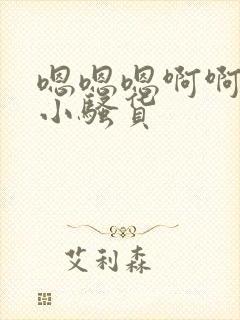 嗯嗯嗯啊啊
小骚货
艾利森